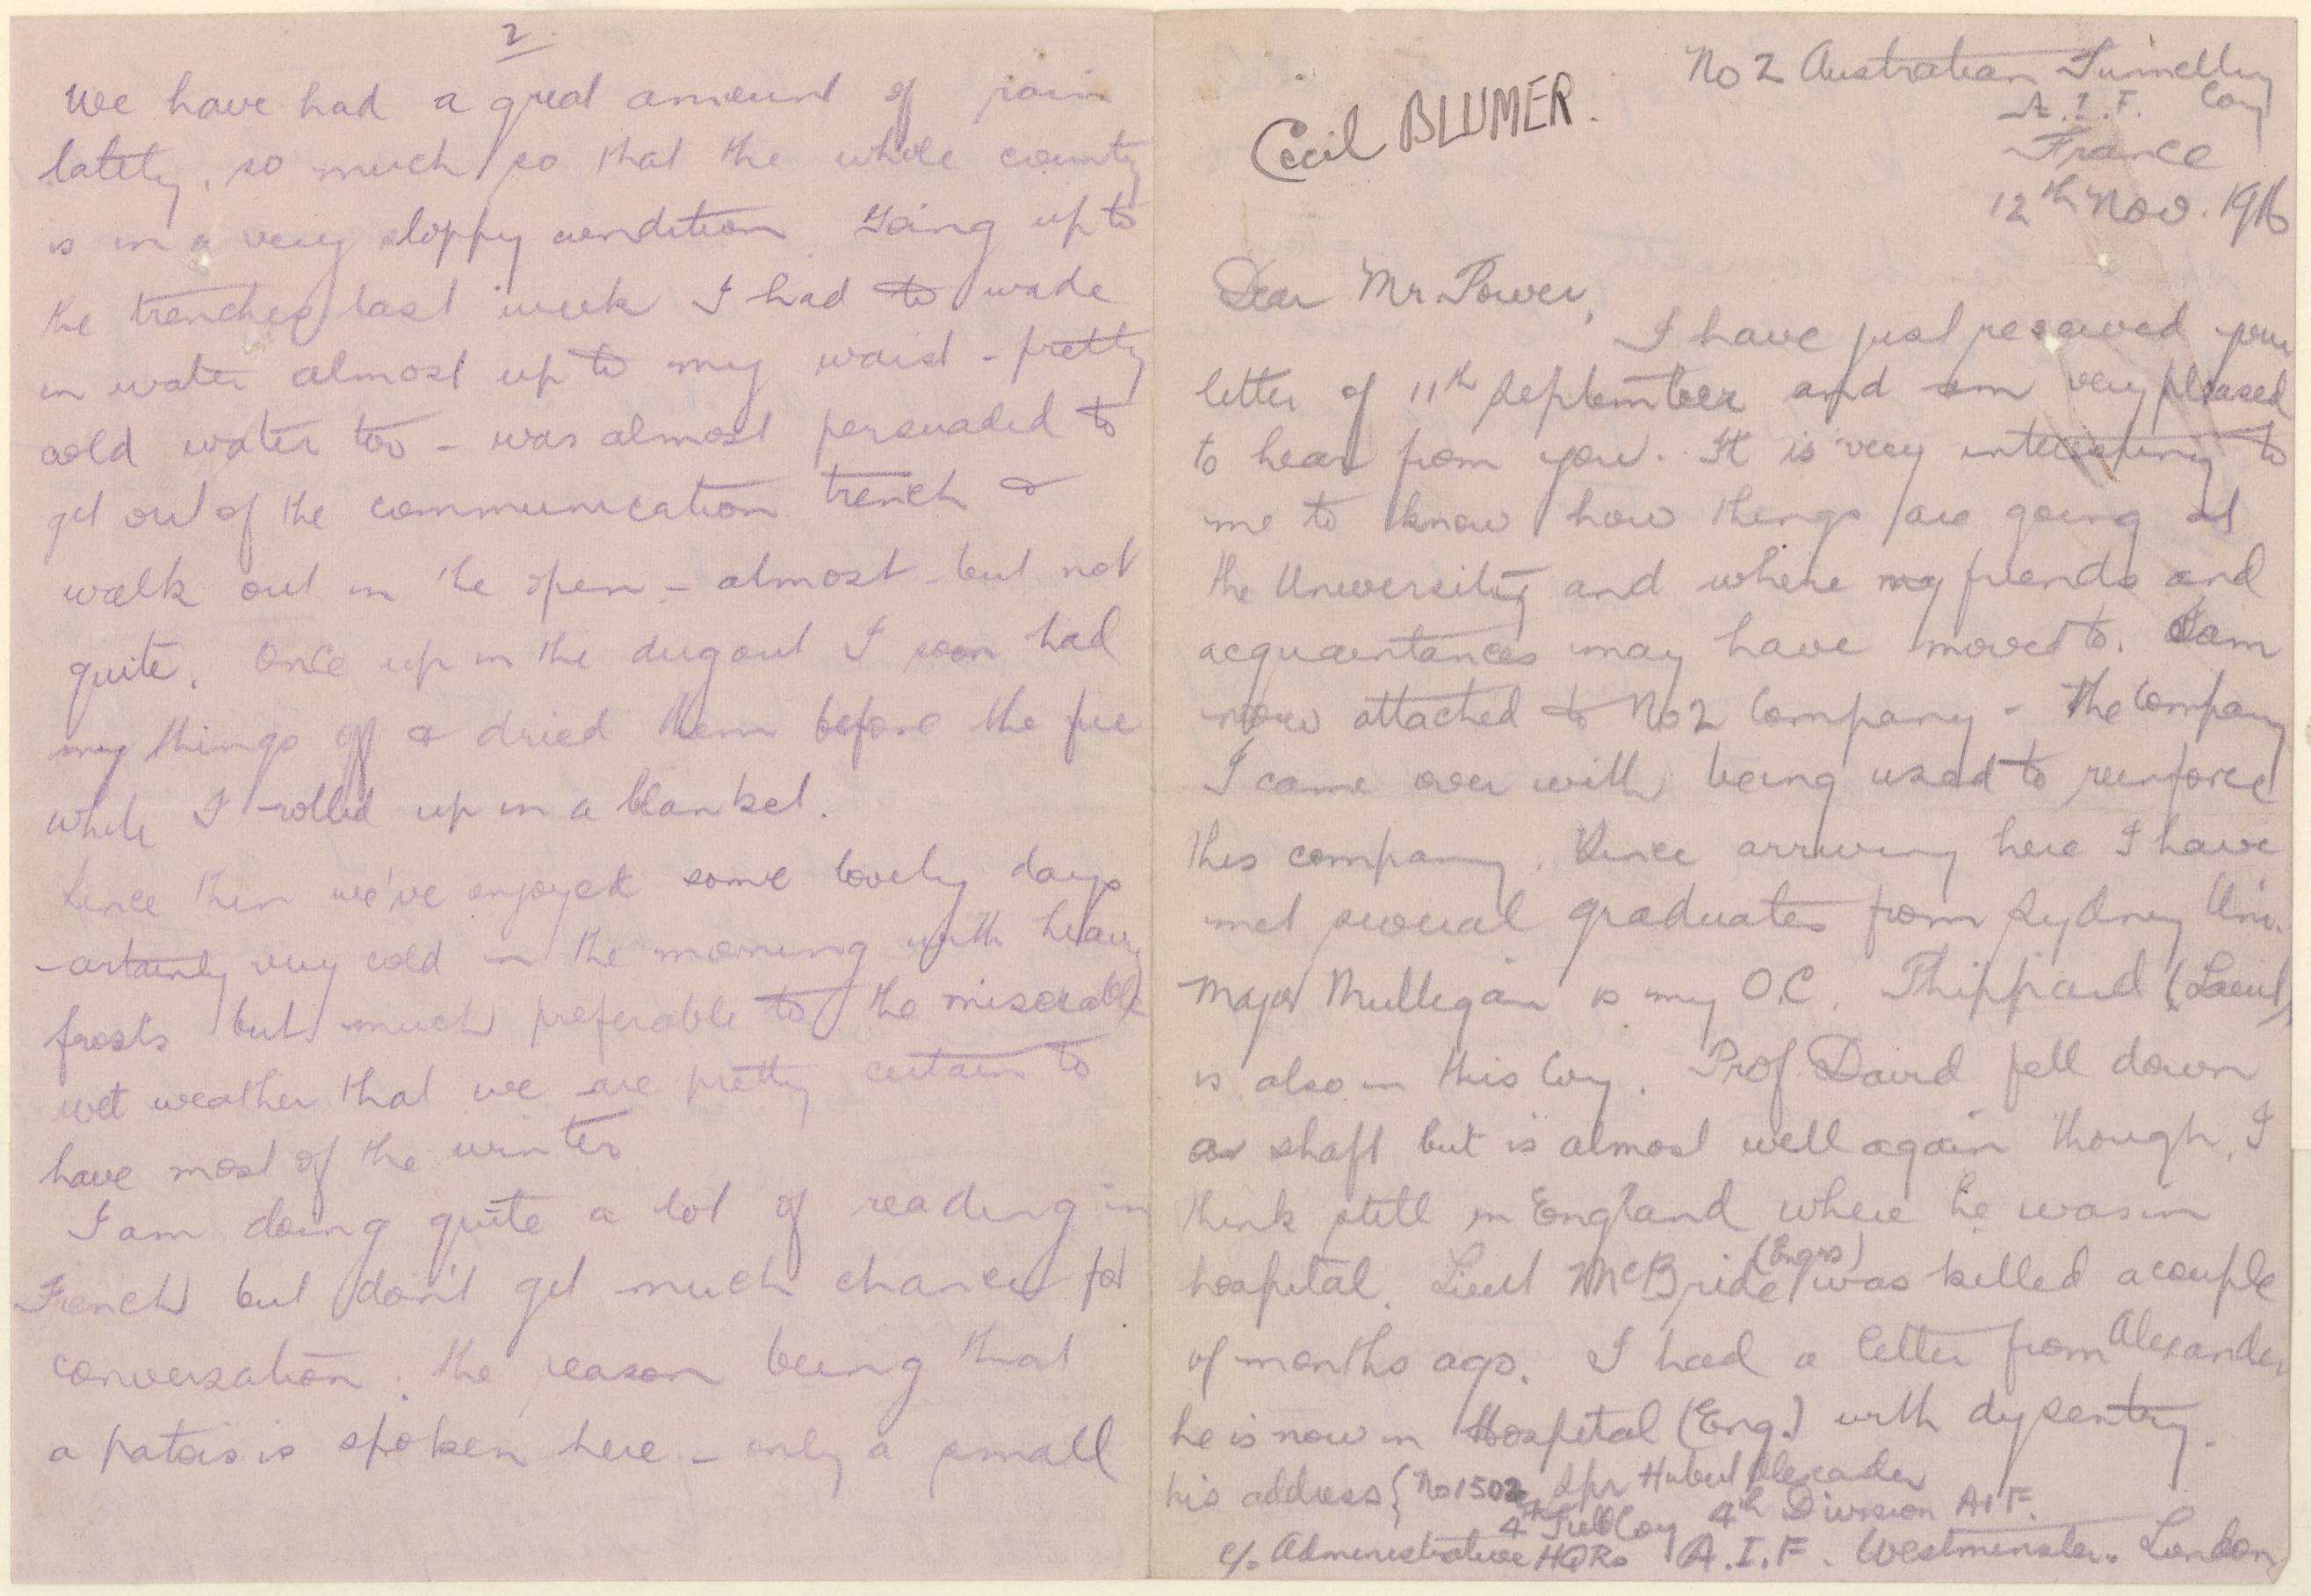 Cecil BLUMER.
No 2 Australian Tunnelling
Coy
A.I.F.
France
12th Nov. 1916
Dear Mr. Power,
I have just received your
letter of 11th September and am very pleased
to hear from you. It is very interesting to
me to know how things are going at
the University and where my friends and
acquaintances may have moved to. I am
now attached to No 2 Company - the Company
I came over with being used to reinforce
this company. Since arriving here I have
met several graduates from Sydney Uni.
Major Mulligan is my O.C. Phippard (Lieut)
is also in this Coy. Prof. David fell down
a shaft but is almost well again though, I
think still in England where he was in
hospital. Lieut McBride (Engrs) was killed a couple
of months ago. I had a letter from Alexander
he is now in Hospital (Eng.) with dysentry.
his address { No 1502 Spr Hubert Alexander
4th Field Coy 4th Division A.I.F.
c/o Administrative HQRs A.I.F. Westminster. London
2.
We have had a great amount of rain
lately, so much so that the whole county
is in a very sloppy condition Going up to
the trenches last week I had to wade
in water almost up to my waist - pretty
cold water too - was almost persuaded to
get out of the communication trench &
walk out in the open - almost but not
quite. Once up in the dugout I soon had
my things off & dried them before the fire
while I rolled up in a blanket.
Since then we've enjoyed some lovely days
- certainly very cold in the morning with heavy
frosts but much preferable to the miserable
wet weather that we are pretty certain to
have most of the winter
I am doing quite a lot of reading in
French but don't get much chance for
conversation. the reason being that
a patois is spoken here - only a small